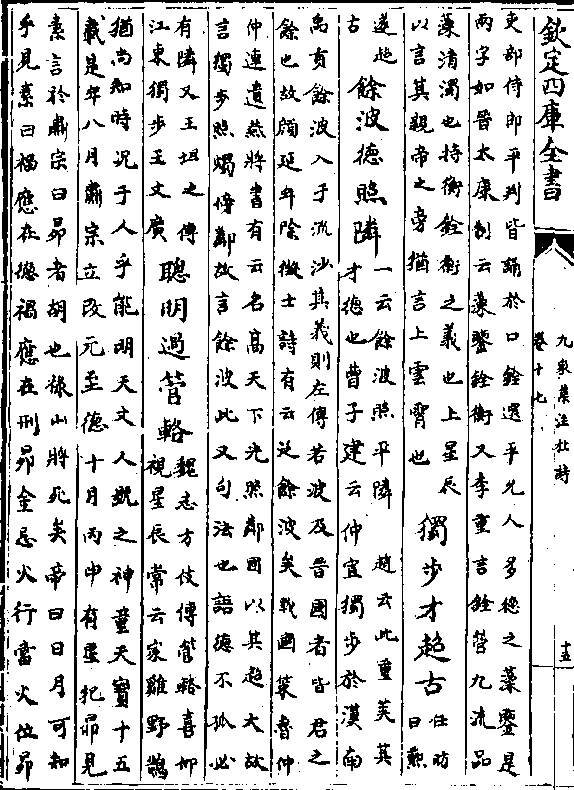 欽定四庫全書
九家集注杜詩
卷十七
十五
吏部侍郎平判皆誦於口銓選平允人多稱之藻鑒是
兩字如晉太康制云藻鑒銓衡又李重言銓管九流品
藻清濁也持衡銓衡之義也上星辰
以言其親帝之旁猶言上雲霄也
獨步才超古
任昉
曰勲
遂超
古
餘波德照隣
一云餘波照平隣 趙云此重美其
才德也曹子建云仲宣獨步於漢南
禹貢餘波入于流沙其義則左傳若波及晉國者皆君之
餘也故顔延年除徵士詩有云泛餘波矣戰國策魯仲
仲連遺燕將書有云名高天下光照鄰國以其超大故
言獨步照燭傍鄰故言餘波此又句法也語德不孤必
有隣又王坦之傳
江東獨步王文廣
聰明過管輅
魏志方伎傳管輅喜仰
視星辰常云家雞野鵠
猶尚知時況于人乎能明天文人號之神童天寶十五
載是年八月肅宗立改元至德十月丙申有星犯昴見
素言於肅宗曰昴者胡也祿山將死矣帝曰日月可知
乎見素曰福應在德禍應在刑昴金忌火行當火位昴